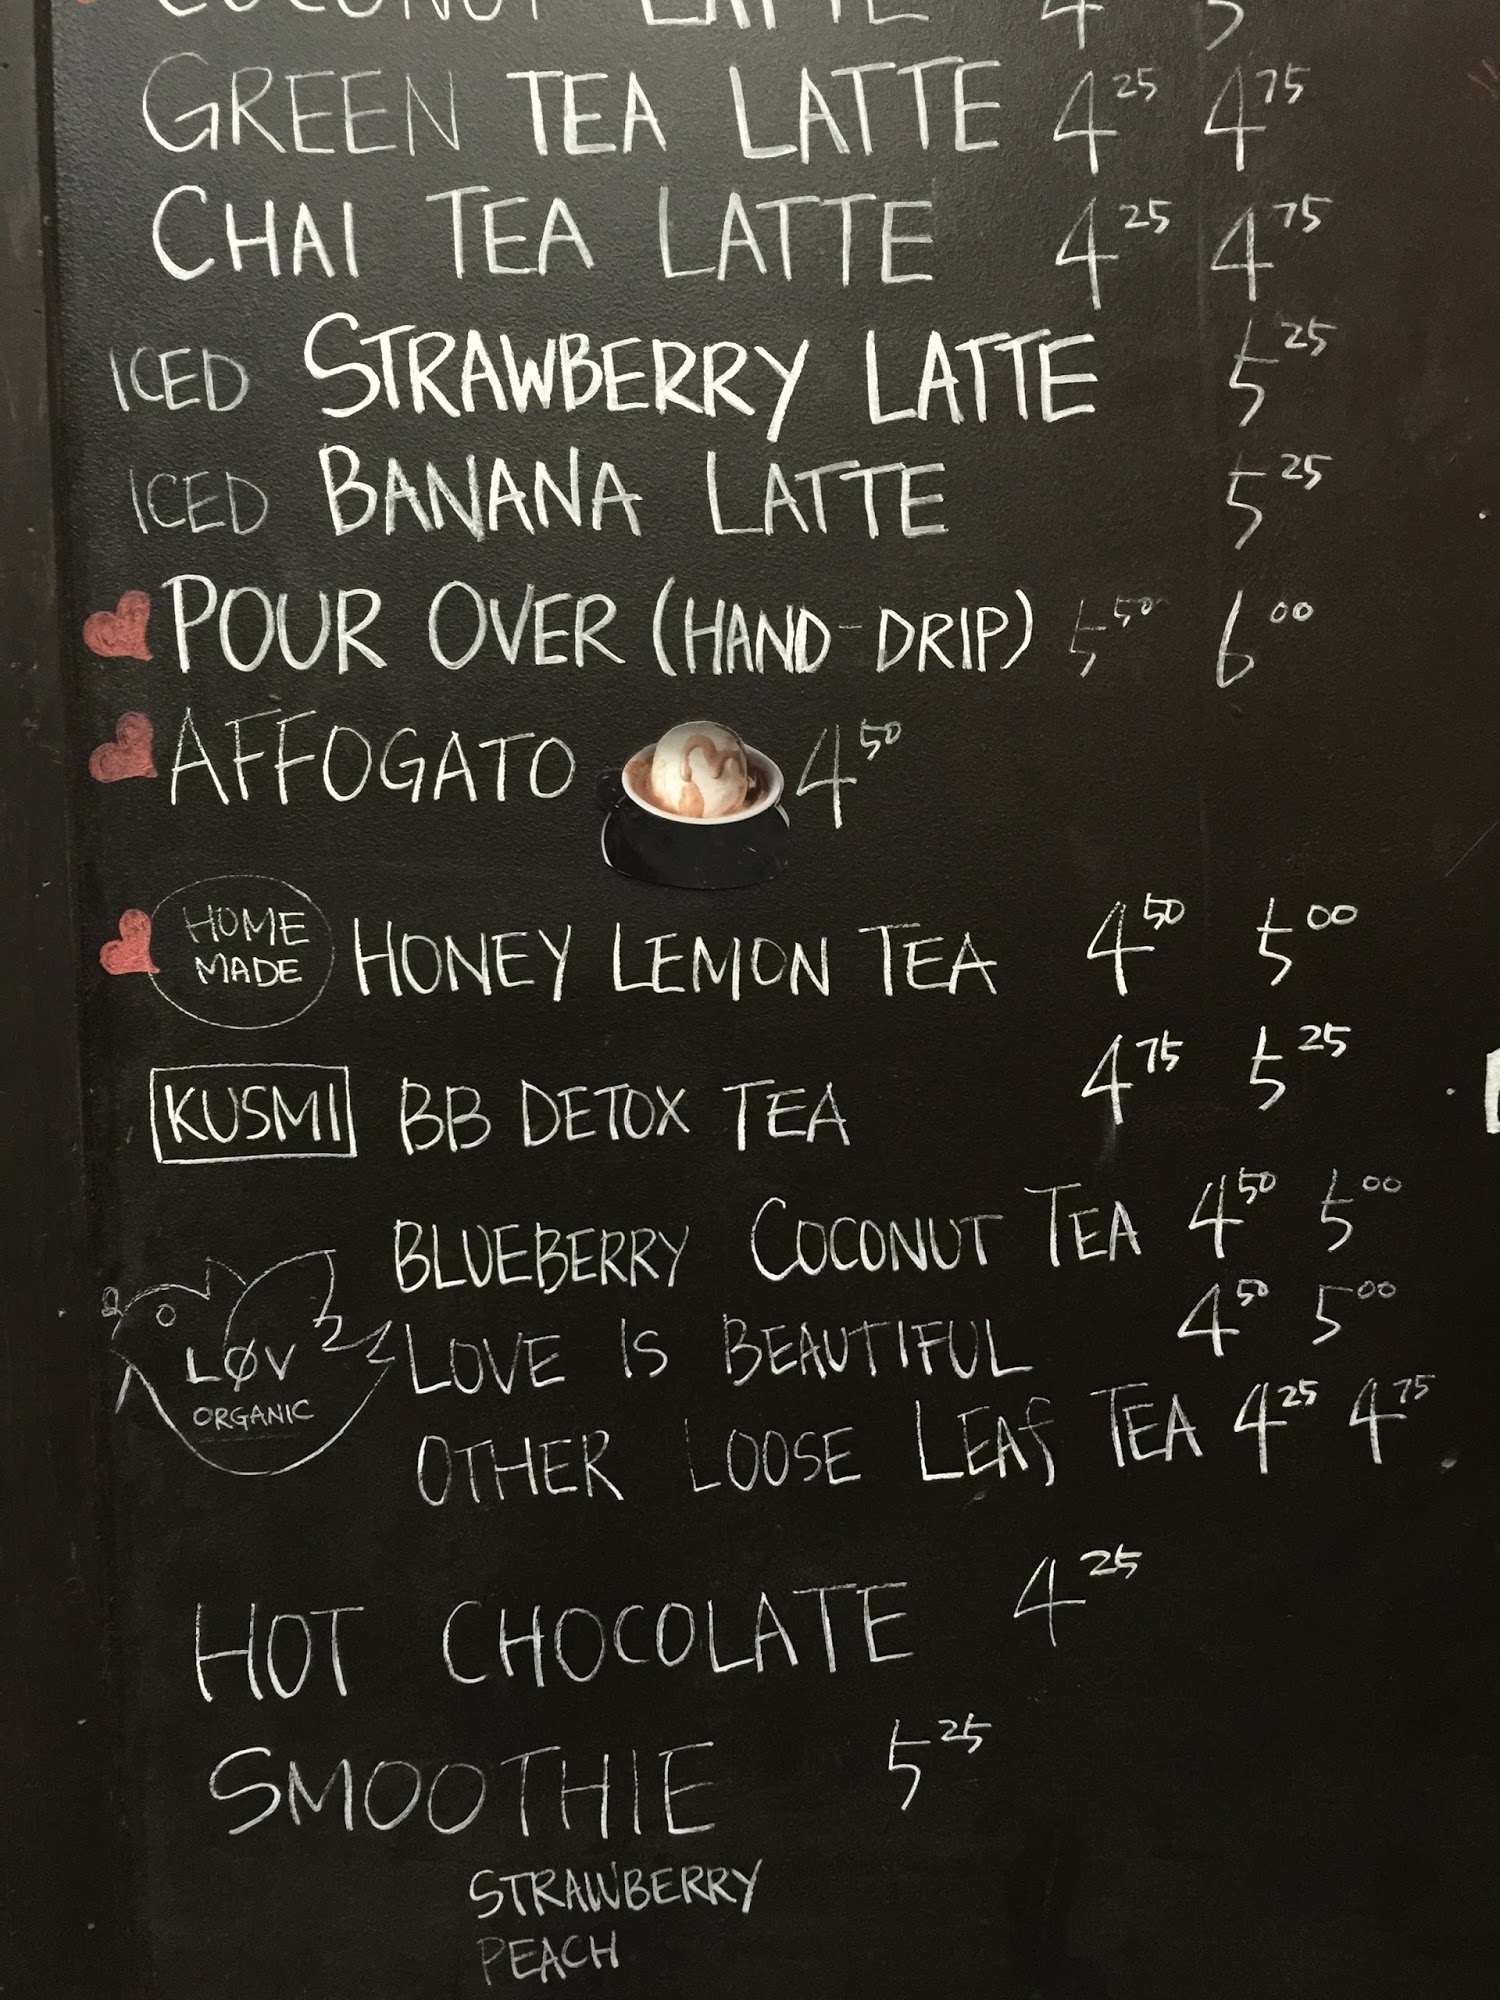 COCONUT LATTE 4 5
GREEN TEA LATTE 4 25 4 75
CHAI TEA LATTE 4 25 4 75
ICED STRAWBERRY LATTE 5 25
ICED BANANA LATTE 5 25
POUR OVER (HAND-DRIP) 5 50 6 00
AFFOGATO 4 50
HOME
MADE
HONEY LEMON TEA 4 50 5 00
KUSMI BB DETOX TEA 4 75 5 25
BLUEBERRY COCONUT TEA 4 50 5 00
LØV
ORGANIC
LOVE IS BEAUTIFUL 4 50 5 00
OTHER LOOSE LEAF TEA 4 25 4 75
HOT CHOCOLATE 4 25
SMOOTHIE 5 25
STRAWBERRY
PEACH